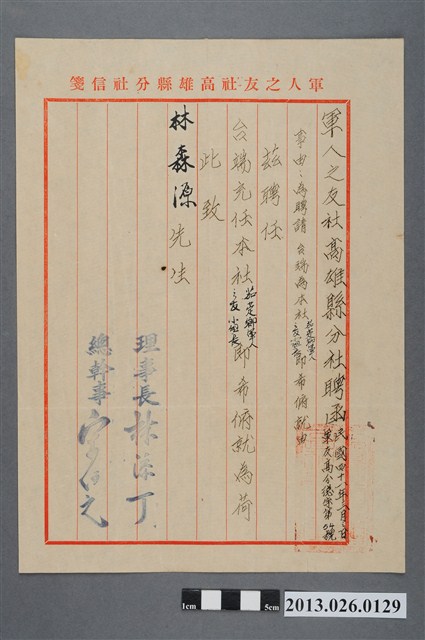 軍人之友社高雄縣分社信箋
軍人之友社高雄縣分社聘函
民國四十一年八月 日
事由：為聘請 台端為本社茄萣鄉軍人之友小組長即希俯就由
茲聘任
台端充任本社茄萣鄉軍人之友小組長即希俯就為荷
此致
林森源 先生
理事長 林添丁
總幹事
1cm 5cm
2013.026.0129